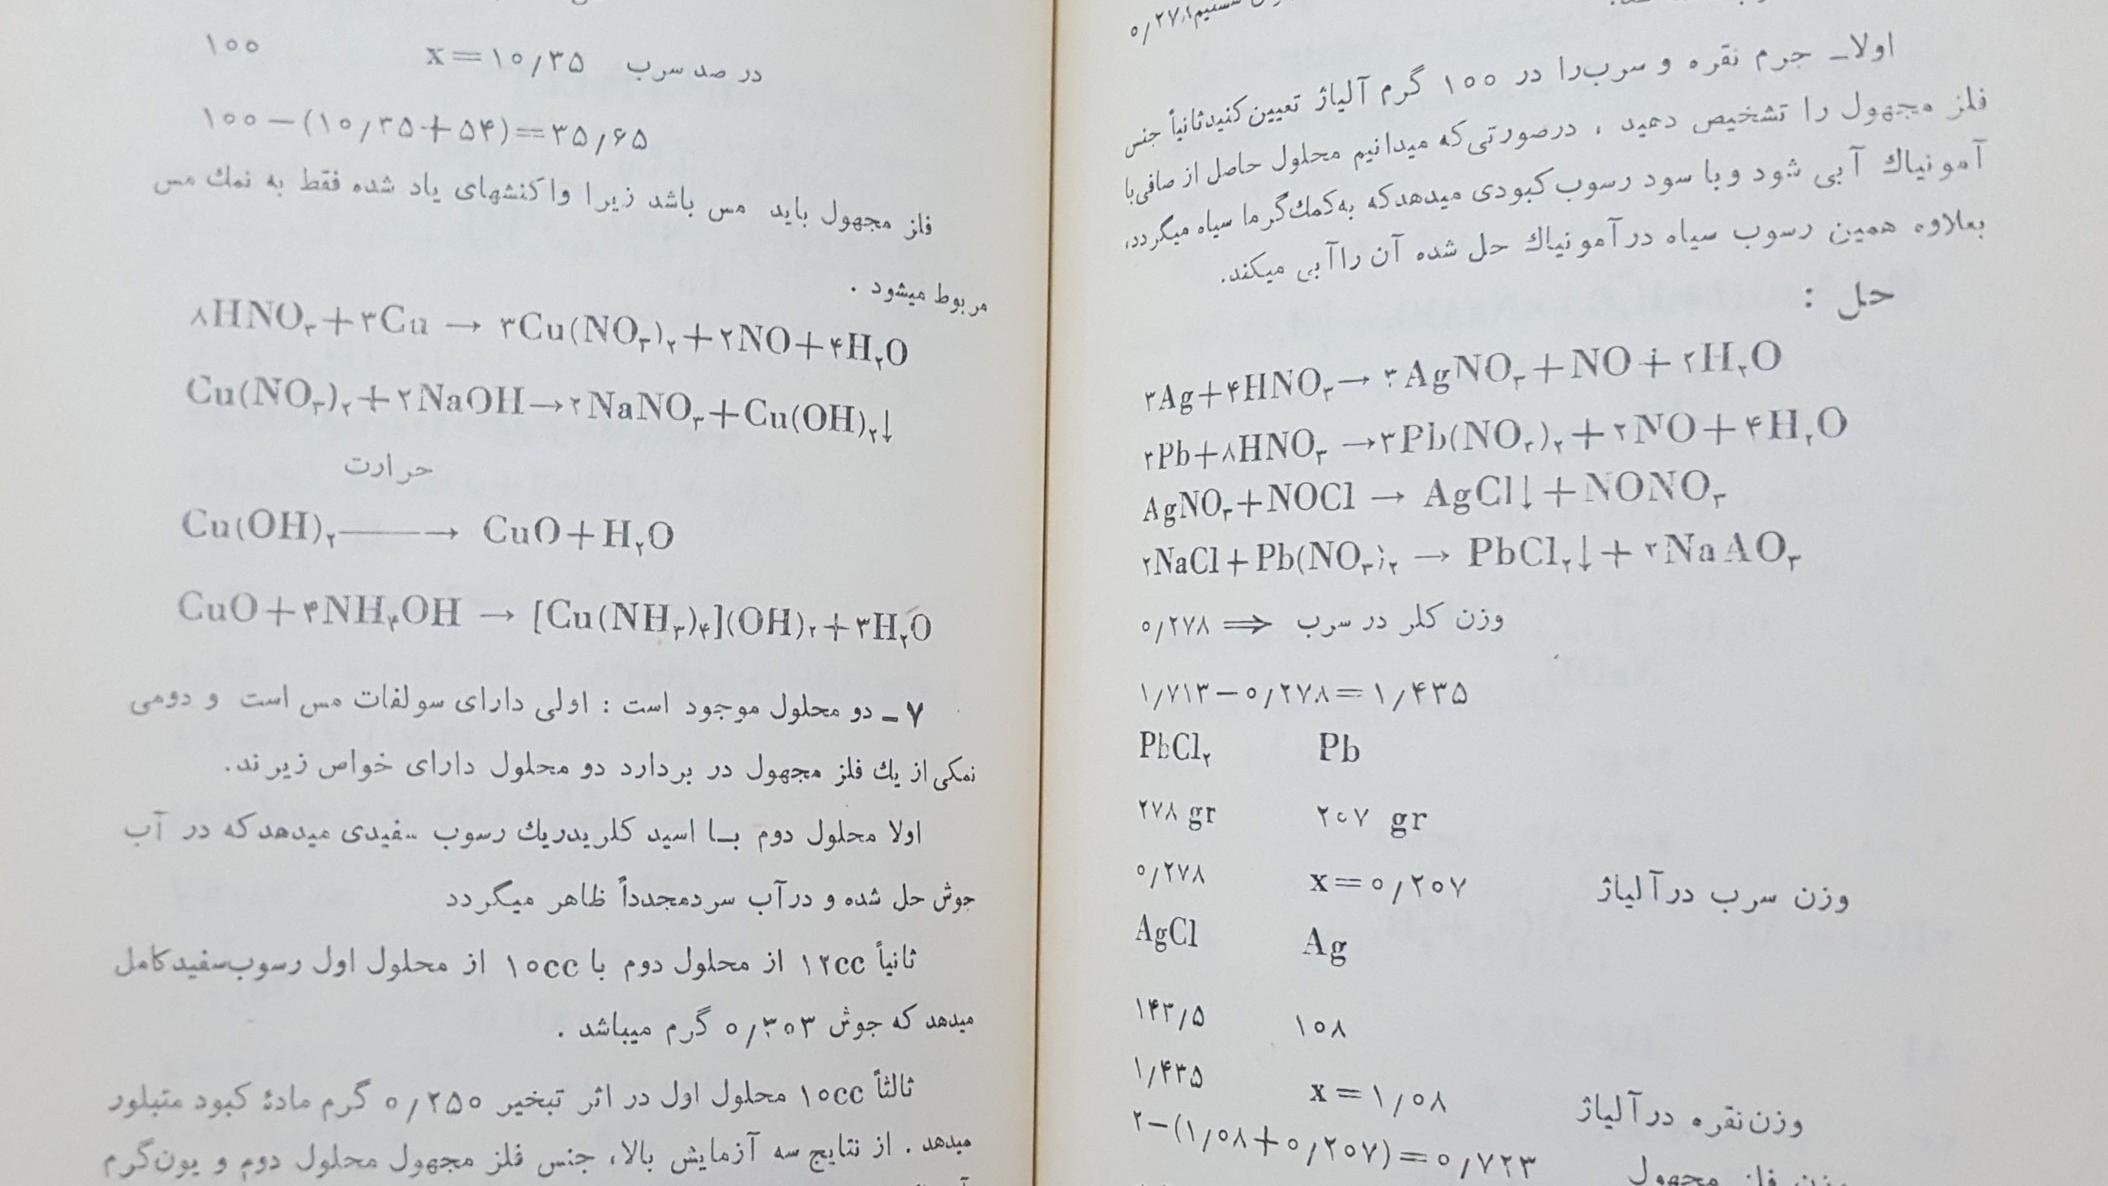 ۰/۲۷۸
اولا_ جرم نقره و سرب‌را در ۱۰۰ گرم آلیاژ تعیین‌کنیدثانیاً جنس
فلز مجهول را تشخیص دهید ، درصورتی‌که میدانیم محلول حاصل از صافی‌با
آمونیاك آبی شود وبا سود رسوب‌کبودی میدهدکه به‌کمك‌گرما سیاه میگردد،
بعلاوه همین رسوب سیاه درآمونیاك حل شده آن راآبی میکند.
حل :
۳Ag+۴HNO۳→ ۳AgNO۳+NO+۲H۲O
۳Pb+۸HNO۳ →۳Pb(NO۳)۲+۲NO+۴H۲O
AgNO۳+NOCl → AgCl↓+NONO۳
۲NaCl+Pb(NO۳)۲ → PbCl۲↓+۲NaAO۳
وزن کلر در سرب ⇒ ۰/۲۷۸
۱/۷۱۳−۰/۲۷۸=۱/۴۳۵
PbCl۲ Pb
۲۷۸ gr ۲۰۷ gr
۰/۲۷۸ x=۰/۲۰۷ وزن سرب درآلیاژ
AgCl Ag
۱۴۳/۵ ۱۰۸
۱/۴۳۵ x=۱/۰۸ وزن‌نقره درآلیاژ
۲−(۱/۰۸+۰/۲۰۷)=۰/۷۲۳ وزن فلز مجهول
۱۰۰ x=۱۰/۳۵ در صد سرب
۱۰۰−(۱۰/۳۵+۵۴)=۳۵/۶۵
فلز مجهول باید مس باشد زیرا واکنشهای یاد شده فقط به نمك مس
مربوط میشود .
۸HNO۳+۳Cu → ۳Cu(NO۳)۲+۲NO+۴H۲O
Cu(NO۳)۲+۲NaOH→۲NaNO۳+Cu(OH)۲↓
حرارت
Cu(OH)۲——→ CuO+H۲O
CuO+۴NH۴OH → [Cu(NH۳)۴](OH)۲+۳H۲O
۷_ دو محلول موجود است : اولی دارای سولفات مس است و دومی
نمکی‌از یك فلز مجهول در بردارد دو محلول دارای خواص زیرند.
اولا محلول دوم بـا اسید کلریدریك رسوب سفیدی میدهدکه در آب
جوش حل شده و درآب سردمجدداً ظاهر میگردد
ثانیاً ۱۲cc از محلول دوم با ۱۰cc از محلول اول رسوب‌سفیدکامل
میدهد که جوش ۰/۳۰۳ گرم میباشد .
ثالثاً ۱۰cc محلول اول در اثر تبخیر ۰/۲۵۰ گرم مادهٔ کبود متبلور
میدهد . از نتایج سه آزمایش بالا، جنس فلز مجهول محلول دوم و یون‌گرم